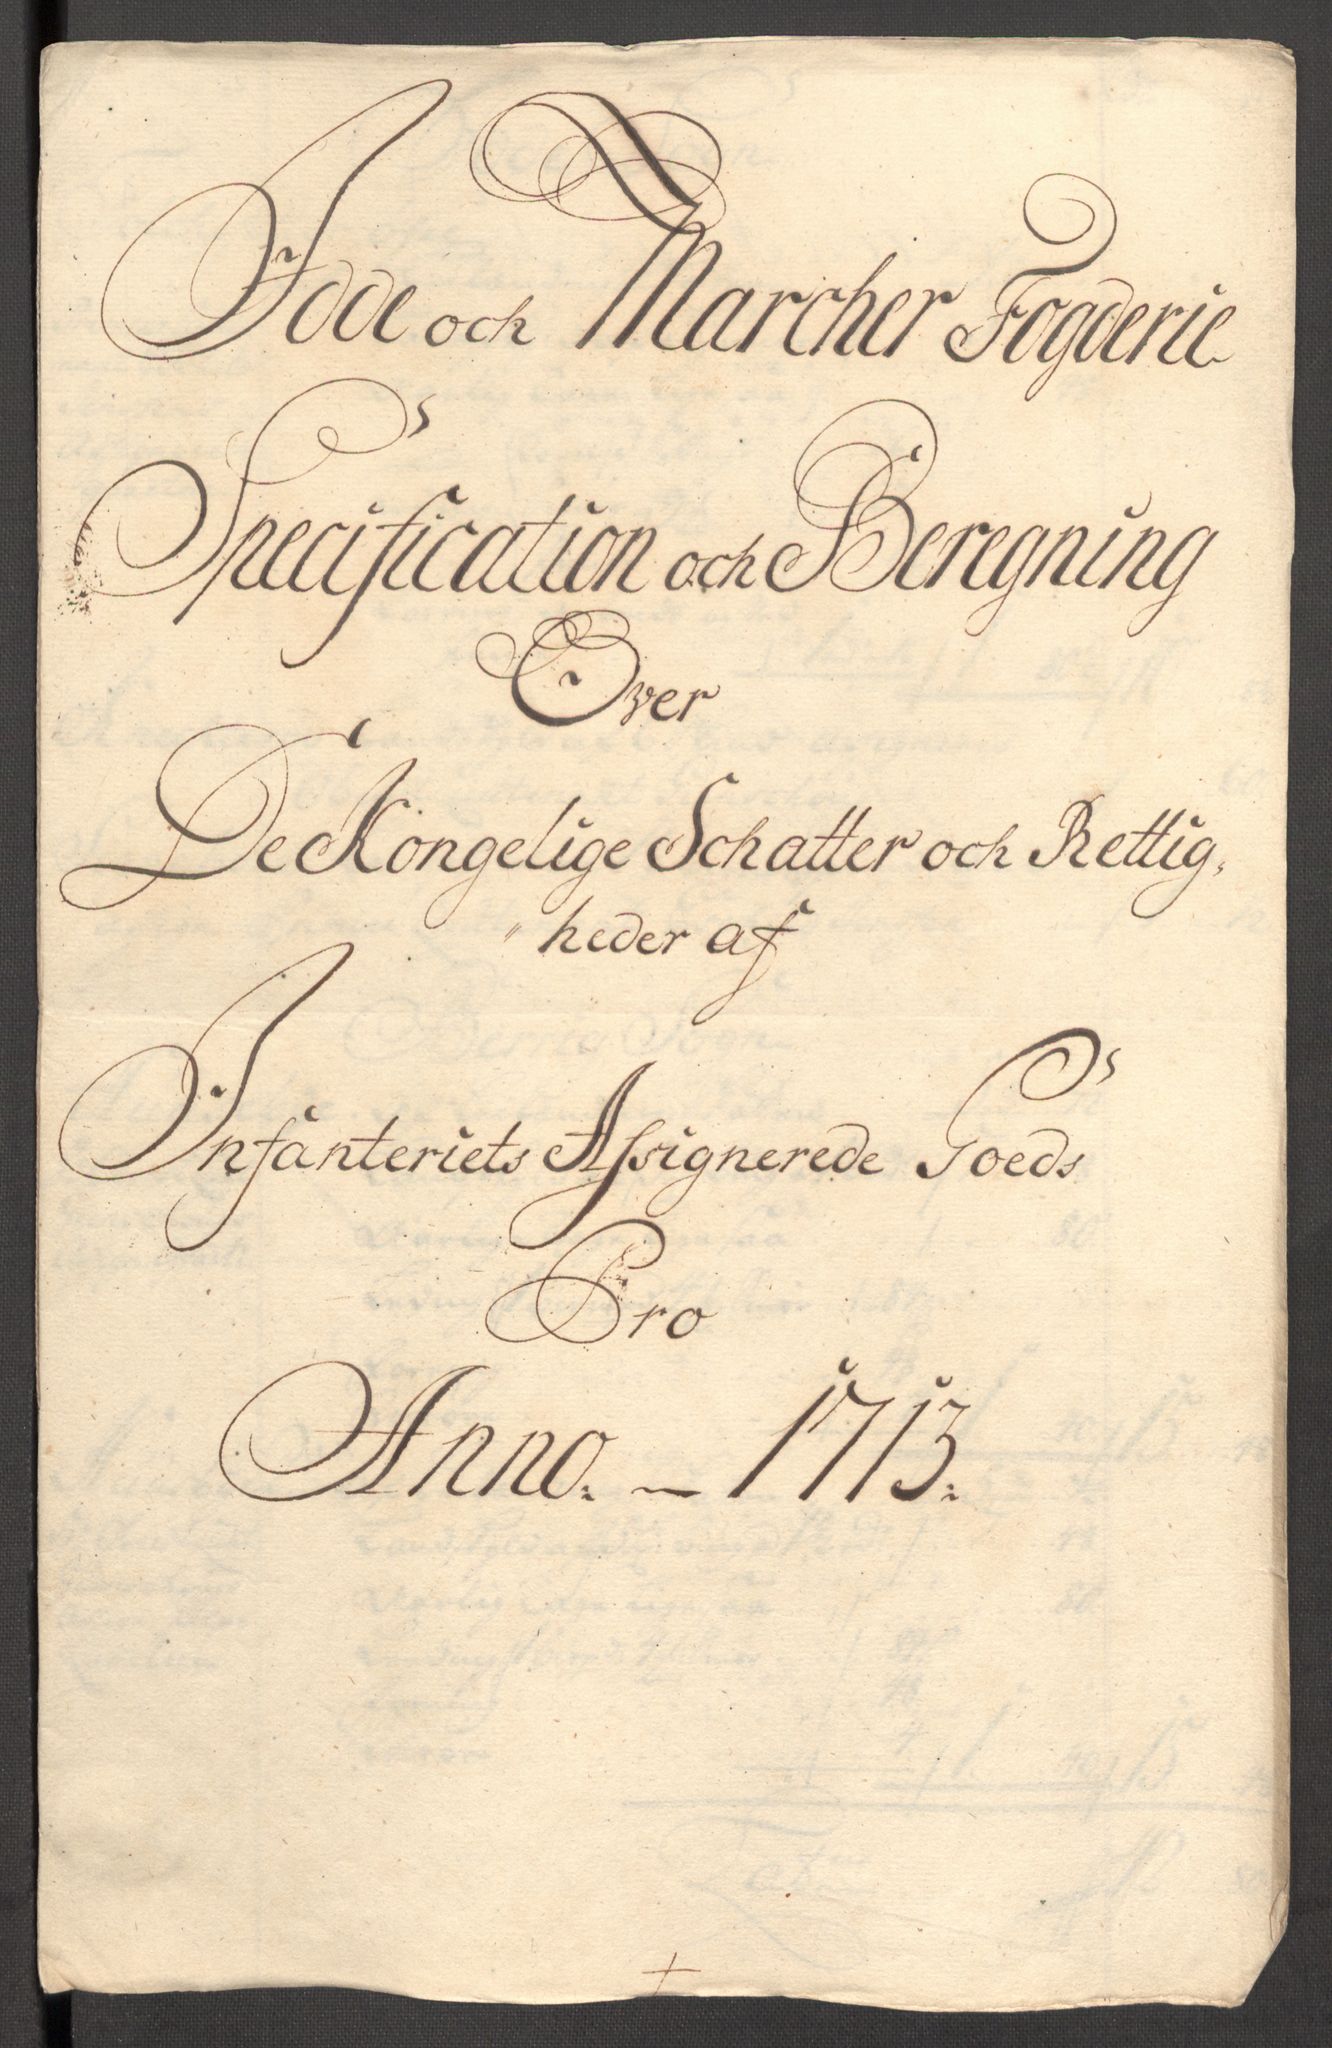 Idde och Marcher Fogderie
Specification och Beregning
Over
De Kongelige Schatter och Rettig,
" heder af
Infanteriets Assignerede Goeds
Pro
Anno. ~ 1713.